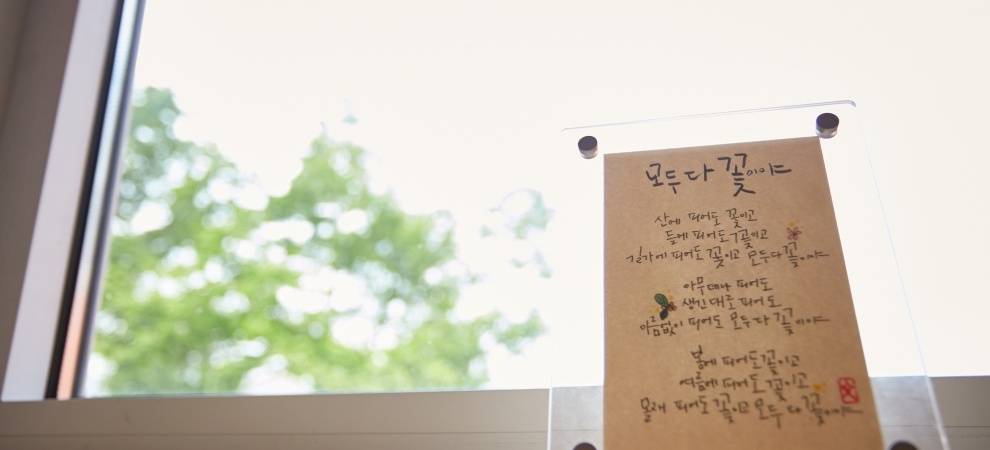 모두 다 꽃이야
산에 피어도 꽃이고
들에 피어도 꽃이고
길가에 피어도 꽃이고 모두 다 꽃이야
아무데나 피어도
생긴대로 피어도
이름없이 피어도 모두 다 꽃이야
봄에 피어도 꽃이고
여름에 피어도 꽃이고
몰래 피어도 꽃이고 모두 다 꽃이야